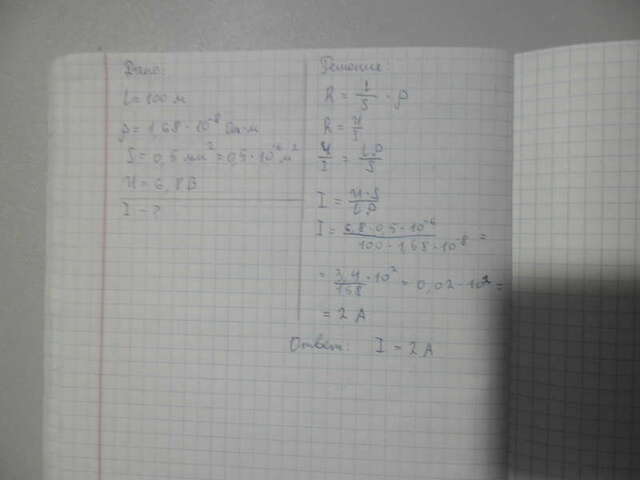 Дано:
l = 100 м
ρ = 1,68 · 10⁻⁸ Ом·м
S = 0,5 мм² = 0,5 · 10⁻⁶ м²
U = 6,8 В
I - ?
Решение:
R = l/S · ρ
R = U/I
U/I = lρ/S
I = U·S/lρ
I = 6,8 · 0,5 · 10⁻⁶ / 100 · 1,68 · 10⁻⁸ =
= 3,4/168 · 10² = 0,02 · 10² =
= 2 А
Ответ: I = 2 А